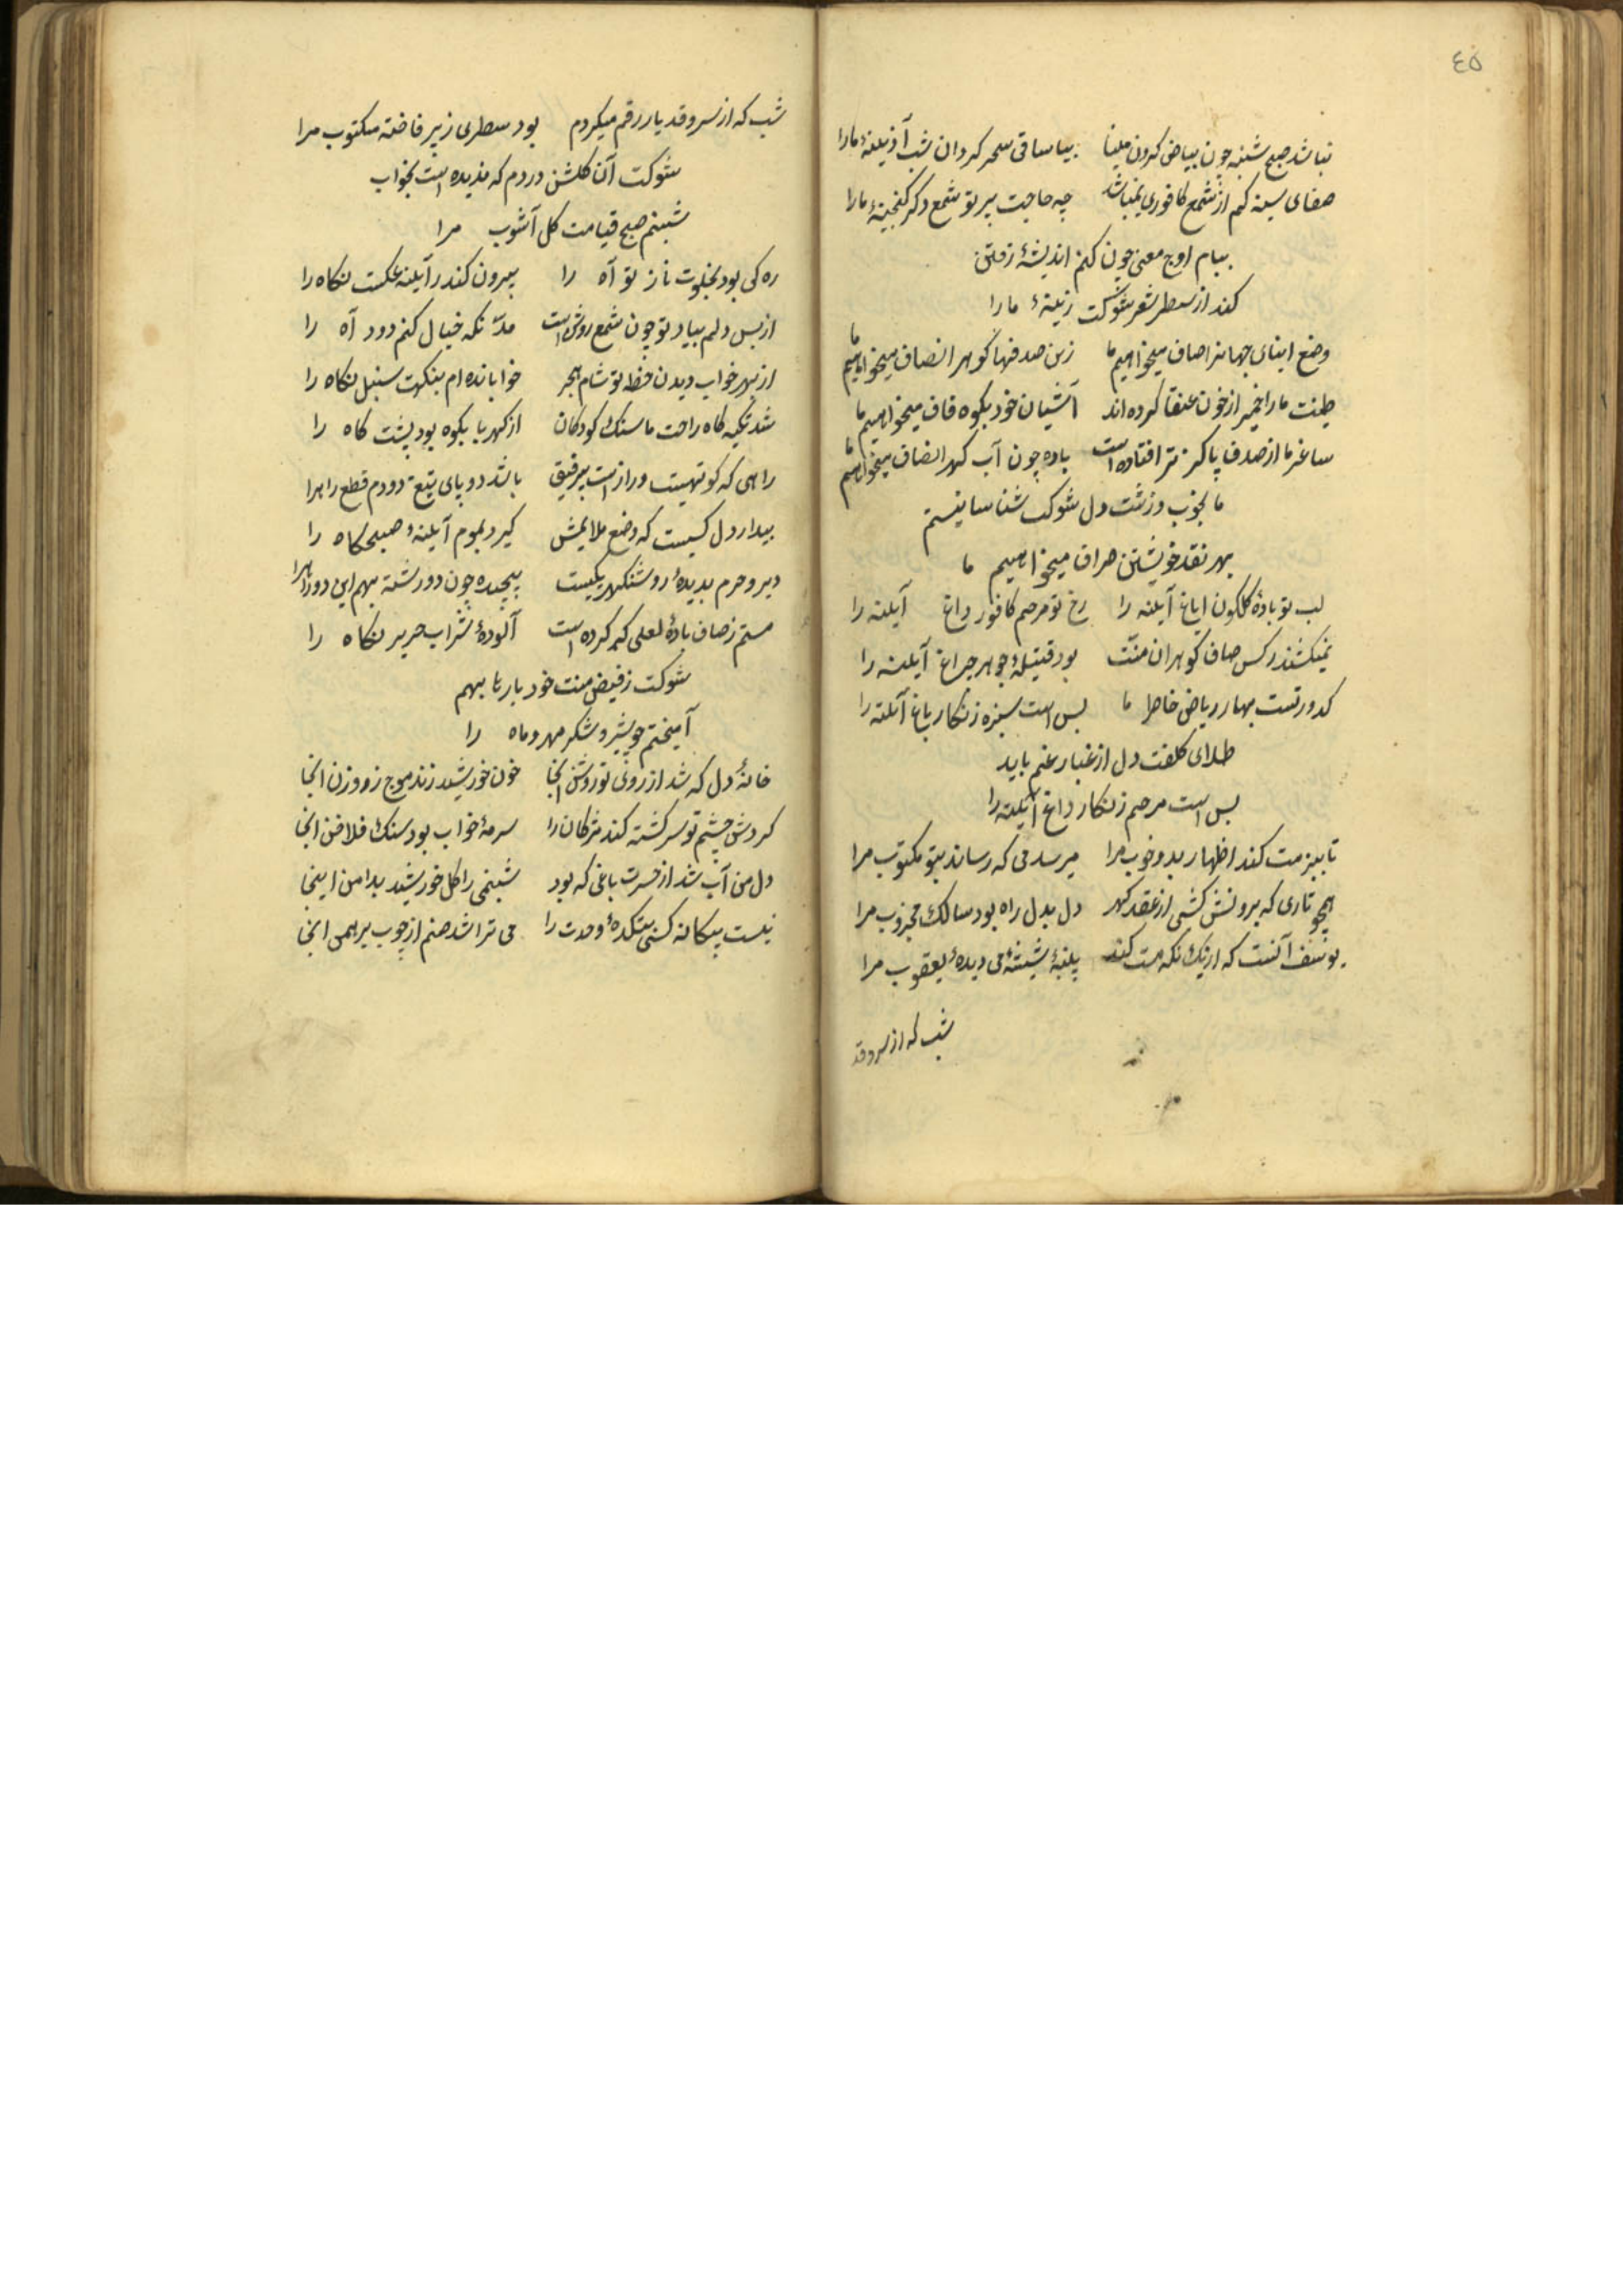 ٤٥
نباشد صبح شنبه چون بیاض کردن مینا بیا ساقی سحر کردان شب آذینهٔ مارا
صفای سینه کم از شمع کافوری نمیباشد چه حاجت پرتو شمع دکر کنجینهٔ مارا
ببام اوج معنی چون کنم اندیشهٔ رفتن
کند از سطر شعر شوکت زینهٔ مارا
وضع ابنای جهانرا صاف میخواهیم ما زین صدفها کوهر انصاف میخواهیم ما
طینت مارا خمیر از خون عنقا کرده اند آشیان خود بکوه قاف میخواهیم ما
ساغر ما از صدف پاکیزه تر افتاده است باده چون آب کهر انصاف میخواهیم ما
ما بخوب و زشت دل شوکت شناسا نیستم
بهر نقد خویشتن صراف میخواهیم ما
لب تو بادهٔ کلکون ایاغ آینه را رخ تو مرهم کافور داغ آینه را
نمیکشند ز کس صاف کوهران منّت بود فتیلهٔ جوهر چراغ آینه را
کدورتست بهار ریاض خاطر ما بس است سبزه زنکار باغ آینه را
طلای کلفت دل از غبار غم باید
بس است مرهم زنکار داغ آینه را
تا ببزمت کند اظهار بد و خوب مرا میرسد می که رساند بتو مکتوب مرا
همچو تاری که برونش کشی از عقد کهر دل بدل راه بود سالک مجذوب مرا
یوسف آنست که از یک نکه مست کند پنبهٔ شیشهٔ می دیدهٔ یعقوب مرا
شب که از سرو قد
شب که از سرو قد یار رقم میکردم بود سطری ز پر فاخته مکتوب مرا
شوکت آن کلشن دردم که ندیده است بخواب
شبنم صبح قیامت کل آشوب مرا
ره کی بود بخلوت ناز تو آه را بیرون کند ز آینه عکست نکاه را
از بس دلم بیاد تو چون شمع روشن است مدّ نکه خیال کنم دود آه را
از بهر خواب دیدن خط تو شام هجر خوابانده ام بنکهت سنبل نکاه را
شد تکیه کاه راحت ما سنک کودکان از کهربا بکوه بود پشت کاه را
راهی که کوتهیست دراز است بی رفیق باشد دو پای تیغ دو دم قطع راه را
بیدار دل کسیست که وضع ملایمش کیرد بموم آینهٔ صبحکاه را
دیر و حرم بدیدهٔ روشنکهر یکیست پیچیده چون دو رشته بهم این دو راه را
مستم ز صاف بادهٔ لعلی که کرده است آلودهٔ شراب حریر نکاه را
شوکت ز فیض منت خود بارها بهم
آمیختم چو شیر و شکر مهر و ماه را
خانهٔ دل که شد از روی تو روشن اینجا خون خورشید زند موج ز روزن اینجا
کردش چشم تو سرکشته کند مژکان را سرمهٔ خواب بود سنک فلاخن اینجا
دل من آب شد از حسرت باغی که بود شبنمی را کل خورشید بدامن اینجا
نیست بیکانه کسی بتکدهٔ وحدت را می تراشد صنم از چوب برهمن اینجا